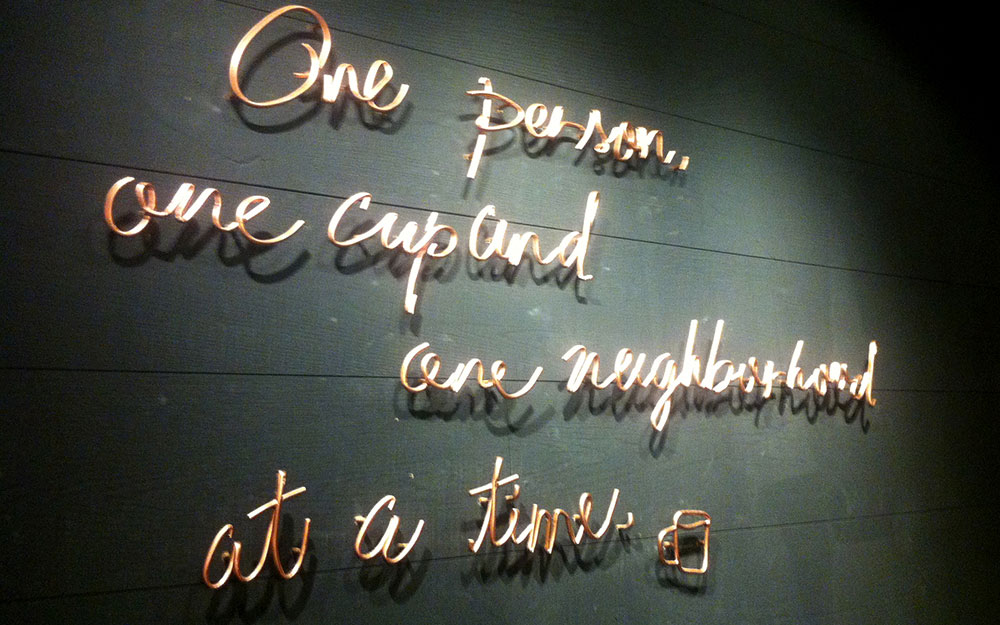 One person,
one cup and
one neighborhood
at a time.